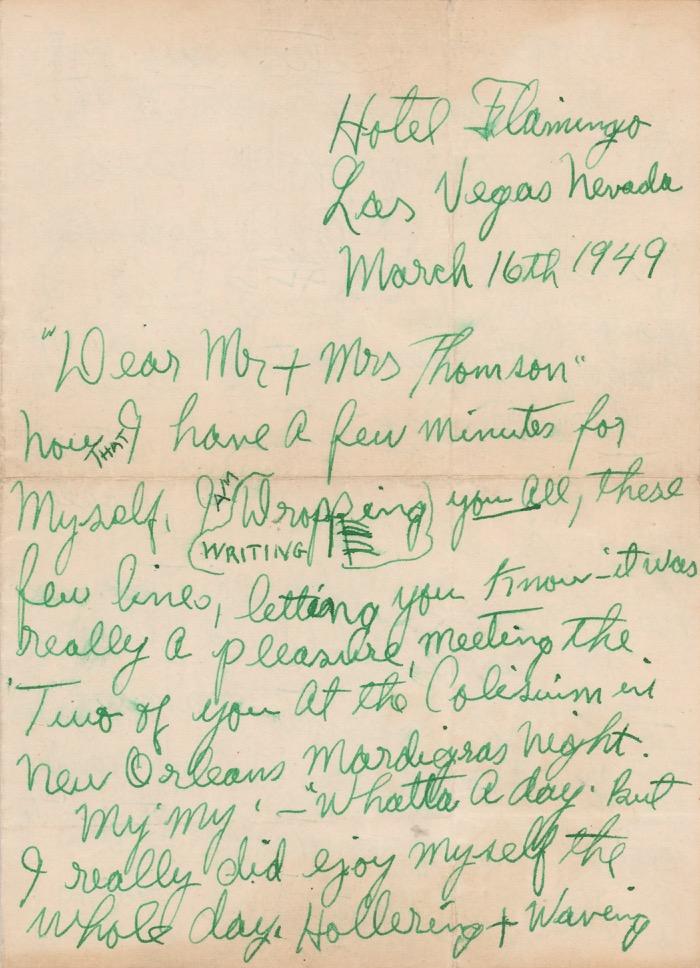 Hotel Flamingo
Las Vegas Nevada
March 16th 1949
"Dear Mr + Mrs Thomson"
Now THAT I have a few minutes for
Myself, I AM Dropping you all, these
WRITING
few lines, letting you know – it was
really a pleasure, meeting the
Two of you at the Colisium in
New Orleans Mardigras Night.
My' my' ' – "Whatta a day. But
I really did ejoy myself the
whole day. Hollering + Waving